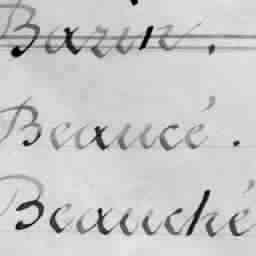 Bazin.
Beaucé.
Beauché